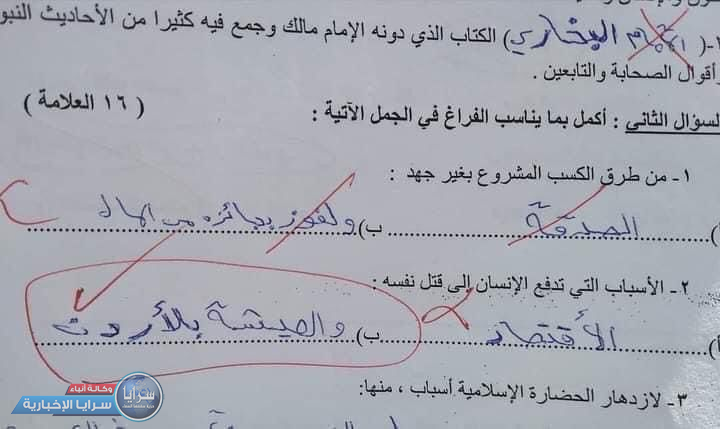 ١-( الإمام البخاري ) الكتاب الذي دونه الإمام مالك وجمع فيه كثيرا من الأحاديث النبو
أقوال الصحابة والتابعين .
السؤال الثاني : أكمل بما يناسب الفراغ في الجمل الآتية : ( ١٦ العلامة )
١- من طرق الكسب المشروع بغير جهد :
أ) الصدقة ب) ولفوز بجائزه من المال
٢- الأسباب التي تدفع الإنسان إلى قتل نفسه :
أ) الأقتصاد ب) والعيشة بالأردن
٣- لازدهار الحضارة الإسلامية أسباب ، منها:
وكالة أنباء
سرايا الإخبارية
سرايا